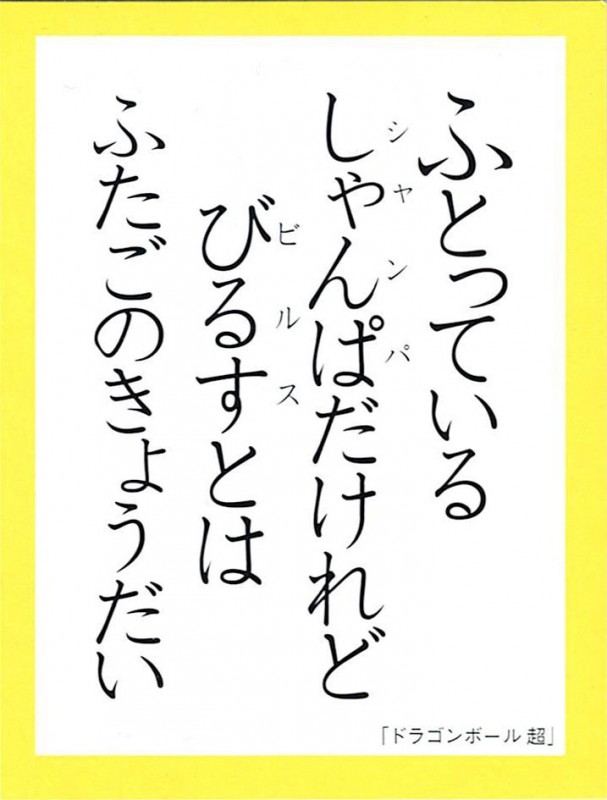 ふとっている
しゃんぱだけれど
シャンパ
びるすとは
ビルス
ふたごのきょうだい
「ドラゴンボール 超」